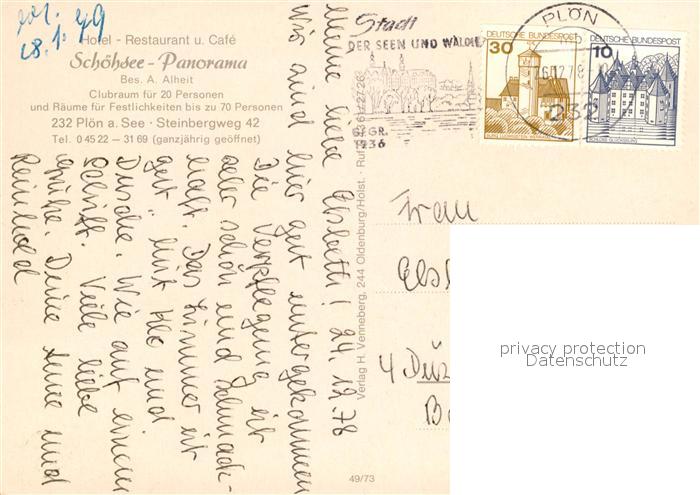 erl. 49
28.1.
Hotel - Restaurant u. Café
Schöhsee - Panorama
Bes. A. Alheit
Clubraum für 20 Personen
und Räume für Festlichkeiten bis zu 70 Personen
232 Plön a. See · Steinbergweg 42
Tel. 0 45 22 – 31 69 (ganzjährig geöffnet)
24.12.78
Meine liebe Elsbeth!
Wir sind hier gut untergekommen
Die Verpflegung ist
aber schön und schmack-
haft. Das Zimmer ist
gut mit Klo und
Dusche. Wie auf einem
Schiff. Viele liebe
Grüße. Deine Anne und
Reinhold
Verlag H. Venneberg, 244 Oldenburg/Holst. · Ruf
49/73
Stadt
DER SEEN UND WÄLDER
GEGR.
1236
PLÖN
26.12.78
232
DEUTSCHE BUNDESPOST
30
DEUTSCHE BUNDESPOST
10
SCHLOSS GLÜCKSBURG
Frau
Els
4 Dü
privacy protection
Datenschutz